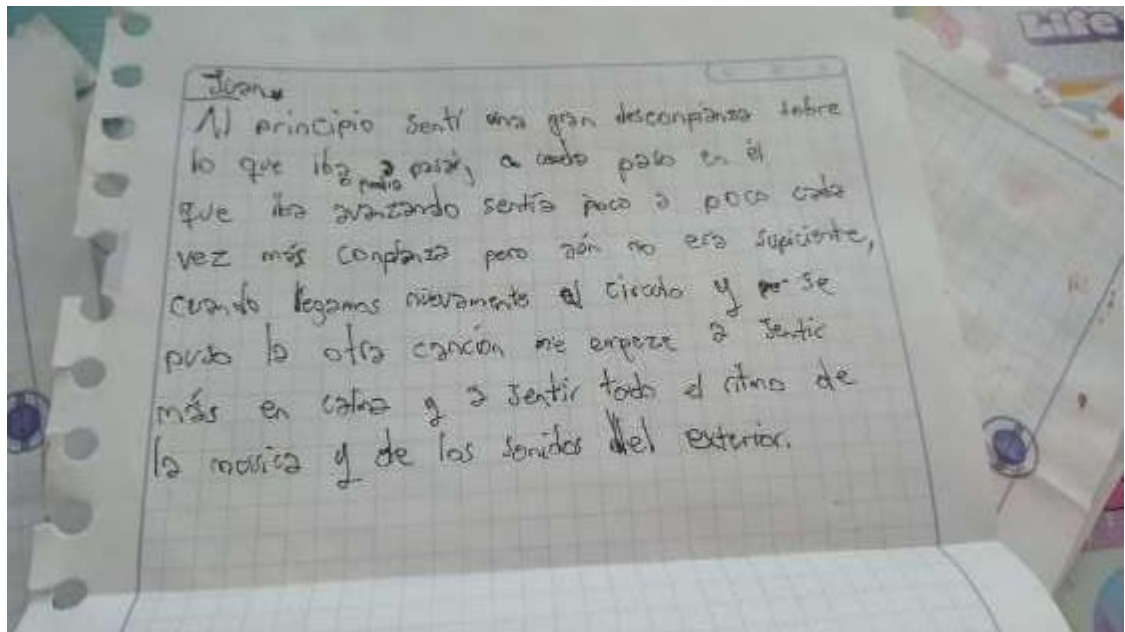 Life
Juan
Al principio sentí una gran desconfianza sobre
lo que iba a pasar, a cada paso en él
podia
que iba avanzando sentía poco a poco cada
vez más confianza pero aún no era suficiente,
cuando llegamos nuevamente al circulo y se
puso la otra canción me empeze a sentir
más en calma y a sentir todo el ritmo de
la musica y de los sonidos del exterior.